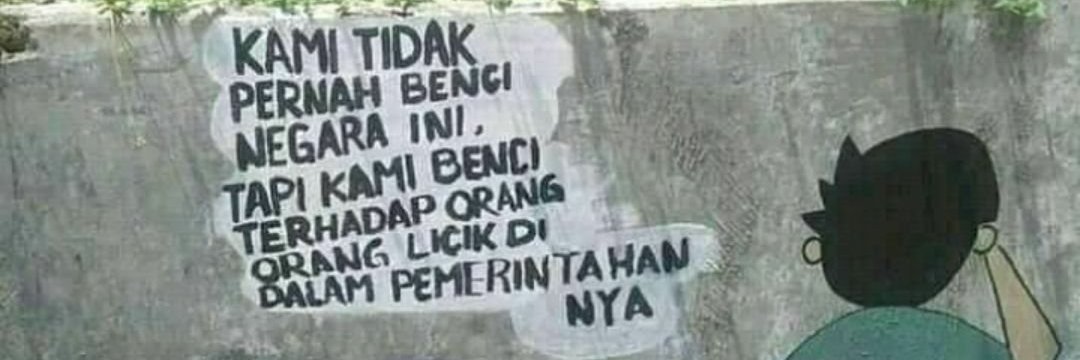 KAMI TIDAK
PERNAH BENCI
NEGARA INI,
TAPI KAMI BENCI
TERHADAP ORANG
ORANG LICIK DI
DALAM PEMERINTAHAN
NYA